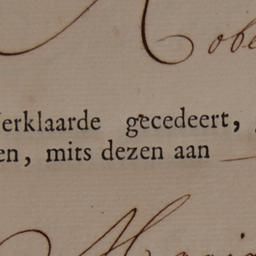 Robe
Verklaarde gecedeert,
en, mits dezen aan